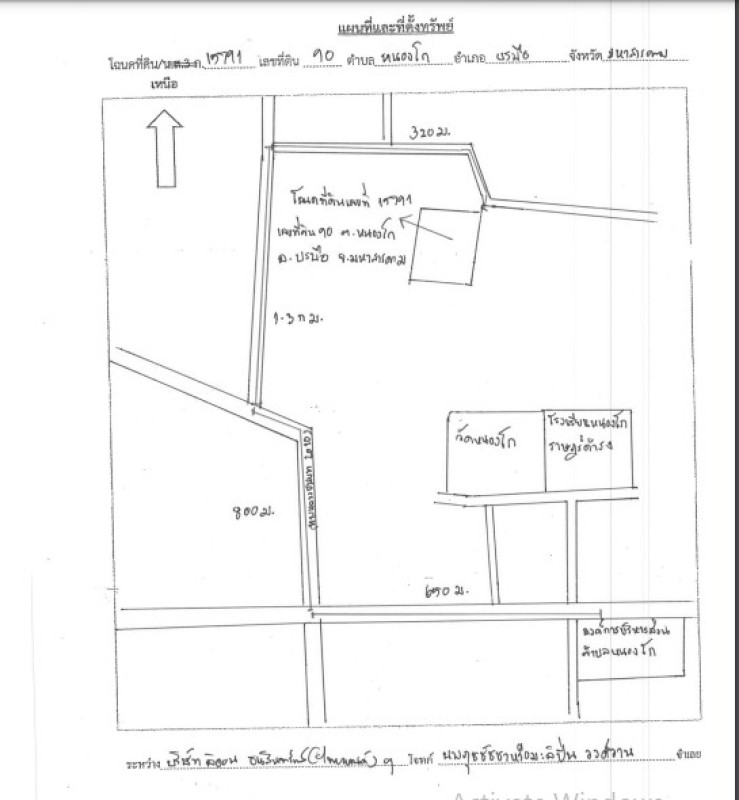 แผนที่และที่ตั้งทรัพย์
โฉนดที่ดิน/น.ส.3 ก. 15791 เลขที่ดิน 90 ตำบล หนองโก อำเภอ บรบือ จังหวัด มหาสารคาม
เหนือ
320 ม.
โฉนดที่ดินเลขที่ 15791
เลขที่ดิน 90 ต.หนองโก
อ.บรบือ จ.มหาสารคาม
1.3 กม.
วัดหนองโก
โรงเรียนหนองโก
ราษฎร์ดำรง
ทางหลวงชนบท
800 ม.
650 ม.
องค์การบริหารส่วน
ตำบลหนองโก
ระหว่าง บริษัท โจทก์ จำเลย